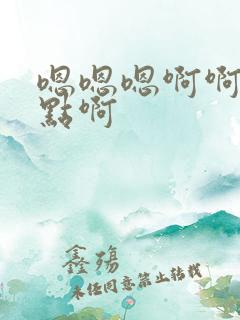 嗯嗯嗯啊啊
點啊
鑫殤
未经同意禁止转载